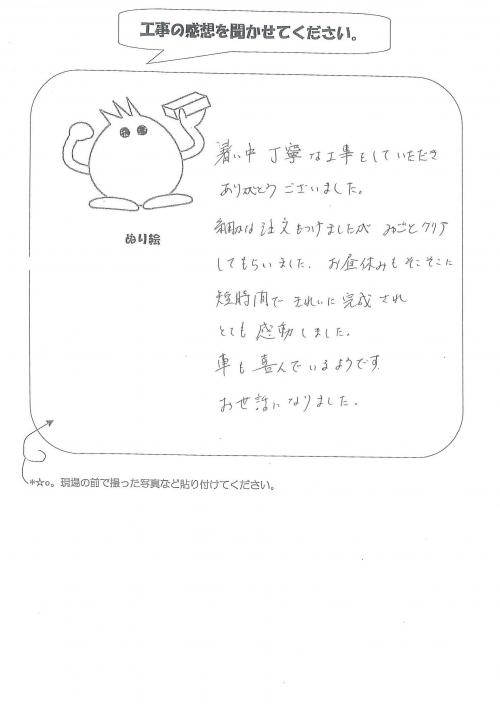 工事の感想を聞かせてください。
暑い中 丁寧な工事をしていただき
ありがとうございました。
細かな注文もつけましたが みごとクリア
してもらいました. お昼休みもそこそこに
短時間で きれいに 完成され
とても 感動しました。
車も 喜んでいるようです.
お世話になりました.
ぬり絵
*☆○。現場の前で撮った写真など貼り付けてください。